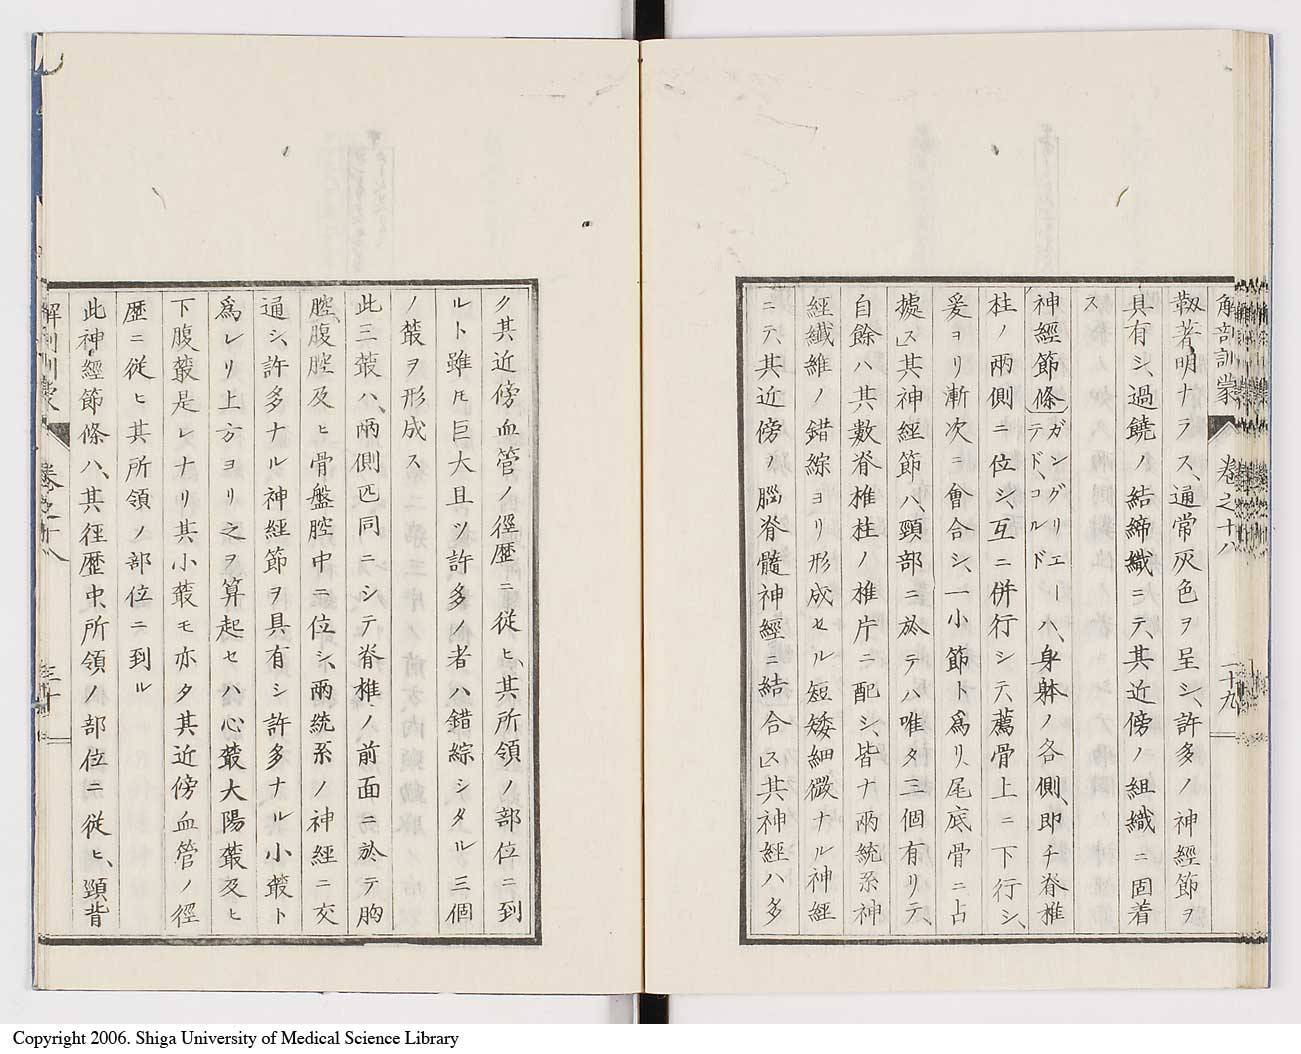 解剖訓蒙 卷之十八 二十九
靱著明ナラス、通常灰色ヲ呈シ、許多ノ神經節ヲ
具有シ、過饒ノ結締織ニテ、其近傍ノ組織ニ固着
ス
神經節條 ガングリエーテド、コルド ハ、身躰ノ各側、即チ脊椎
柱ノ兩側ニ位シ、互ニ併行シテ薦骨上ニ下行シ、
爰ヨリ漸次ニ會合シ、一小節ト爲リ、尾底骨ニ占
據ス其神經節ハ、頸部ニ於テハ唯タ三個有リテ、
自餘ハ其數脊椎柱ノ椎片ニ配シ、皆ナ兩統系神
經纖維ノ錯綜ヨリ形成セル短矮細微ナル神經
ニテ、其近傍ノ腦脊髓神經ニ結合ス其神經ハ多
ク其近傍血管ノ徑歷ニ從ヒ、其所領ノ部位ニ到
ルト雖𪜈巨大且ツ許多ノ者ハ錯綜シタル三個
ノ叢ヲ形成ス
此三叢ハ、兩側匹同ニシテ脊椎ノ前面ニ於テ胸
腔、腹腔及ヒ骨盤腔中ニ位シ、兩統系ノ神經ニ交
通シ、許多ナル神經節ヲ具有シ許多ナル小叢ト
爲レリ上方ヨリ之ヲ算起セハ心叢大陽叢及ヒ
下腹叢是レナリ其小叢モ亦タ其近傍血管ノ徑
歷ニ從ヒ其所領ノ部位ニ到ル
此神經節條ハ、其徑歷中、所領ノ部位ニ從ヒ、頸背
解剖訓蒙 卷之十八 三十
Copyright 2006. Shiga University of Medical Science Library